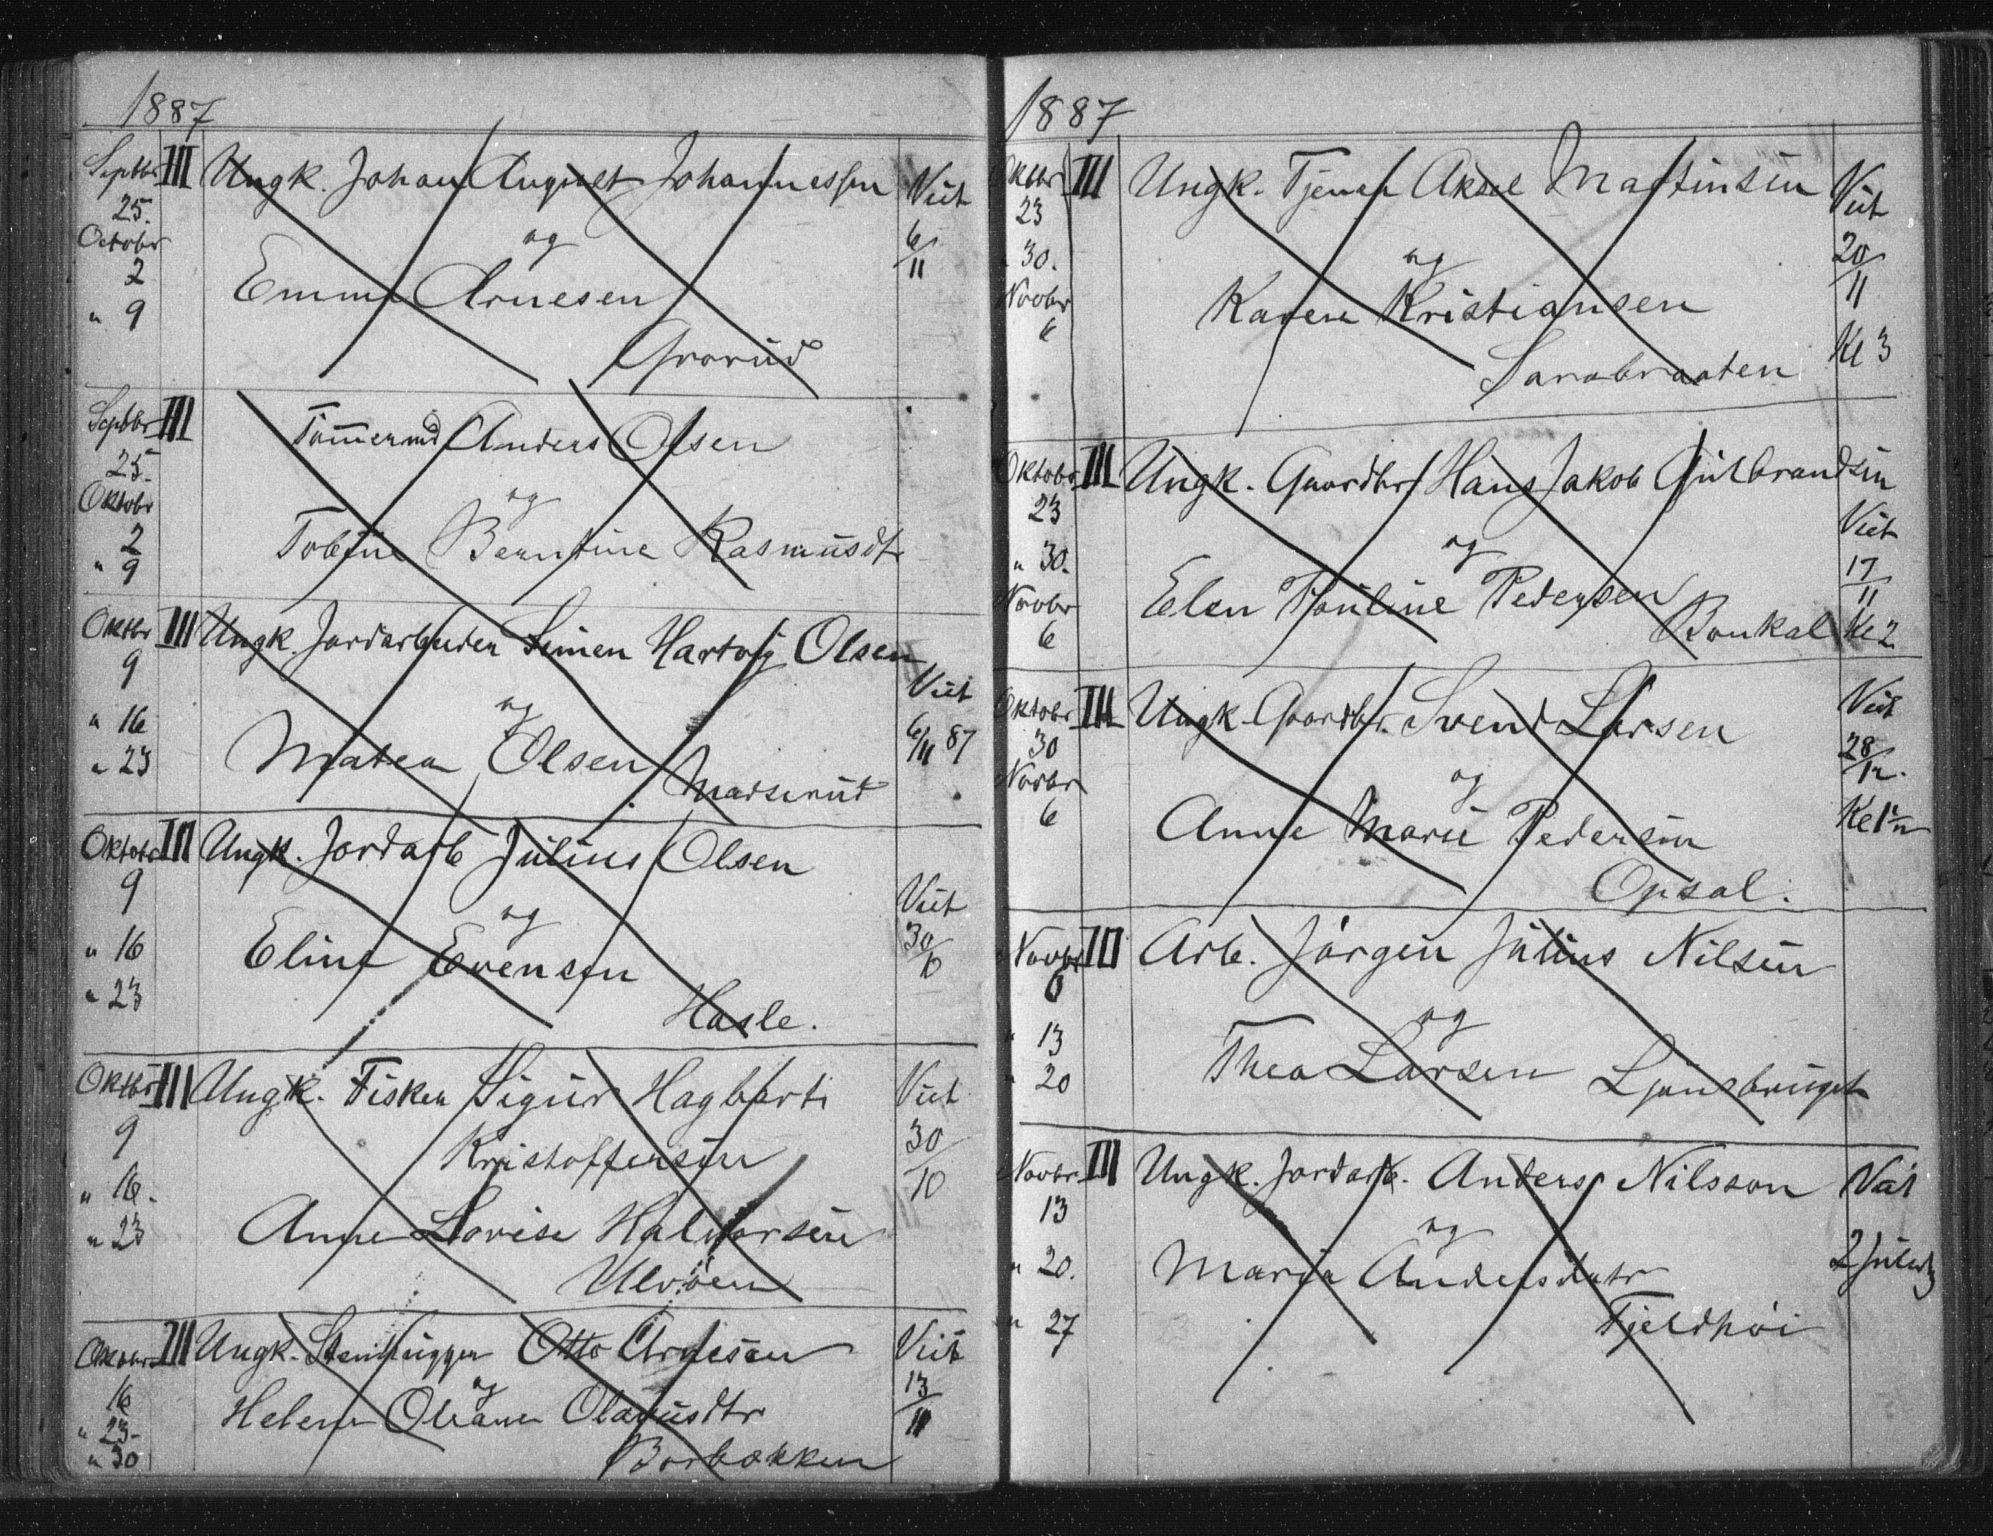 1887
Septbr III Ungk. Johan August Johannessen Viet
25.
Octobr og 6/11
2 Emma Arnesen
" 9
Grorud
Septbr III Tømmermd Anders Olsen
25.
Oktobr og
2 Tobine Berntine Rasmusdt
" 9
Oktbr III Ungk. Jordarbeider Simen Hartvig Olsen
9 Viet
" 16 og 6/11 87
" 23 Matea Olsen
Oktobr III Ungk. Jordarb Julius Olsen
9 Viet
" 16 og 30/10
Eline Evensen
" 23 Hasle.
Oktbr III Ungk. Fisker Sigur Hagbart Viet
9 Kristoffersen 30/10
" 16.
" 23 Anne Lovise Halvorsen
Ulvøen
Oktobr III Ungk. Stenhugger Otto Arnesen Viet
16 og 13/11
" 23- Helene Oliane Olavusdtr
" 30 Borbækken
1887
Oktbr III Ungk. Tjener Aksel Martinsen Viet
23
" 30. og 20/11
Novbr Karen Kristiansen
6 Kl 3
Sarabraaten
Oktobr III Ungk. Gaardbr Hans Jakob Gulbrandsen
23 Viet
" 30. og 17/11
Novbr Elen Pauline Pedersen
6 Bonkal Kl 2
Oktobr III Ungk. Gaardbr. Svend Larsen Viet
30 28/12.
Novbr og
6 Anne Marie Pedersen Kl 1½
Opsal.
Novbr III Arb. Jörgen Julius Nilsen
6
" 13 og
" 20 Thea Larsen Ljansbruget
Novbr III Ungk. Jordarb. Anders Nilsson Viet
13 og
" 20. Maria Andersdatr 2 Juled
" 27 Fjeldhöi